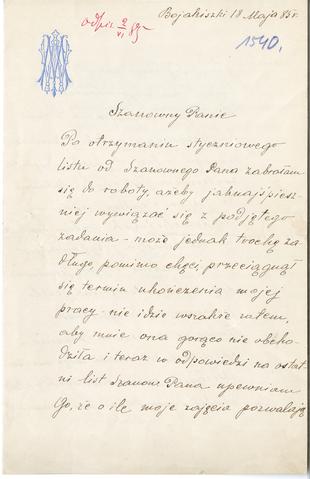 Bojakiszki 18 Maja 85 r.
odpis 2/VI 85
1540.
Szanowny Panie
Po otrzymaniu styczniowego
listu od Szanownego Pana zabrałam
się do roboty, ażeby jaknajśpiesz-
niej wywiązać się z podjętego
zadania - może jednak trochę za
długo, pomimo chęci, przeciągnął
się termin ukończenia mojej
pracy - nie idzie wszakże zatem,
aby mnie ona gorąco nie obcho-
dziła i teraz w odpowiedzi na ostat-
ni list Szanow. Pana upewniam
Go, że o ile moje zajęcia pozwalają